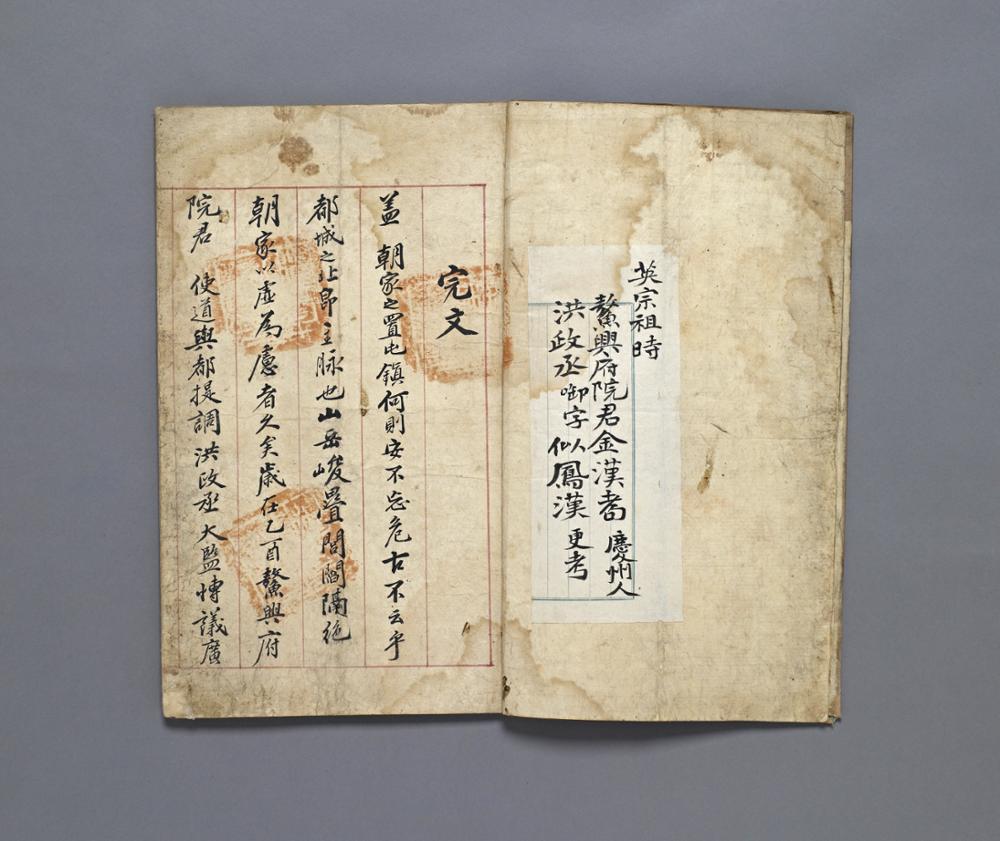 英宗祖時
鰲興府院君金漢耈 慶州人
洪政丞啣字似鳳漢 更考
完文
盖 朝家之置屯鎭何則安不忘危古不云乎
都城之北即主脉也山岳峻疊閭閻隔絶
朝家以虛為慮者久矣歲在乙酉鰲興府
院君 使道與都提調洪政丞大監愽議廣